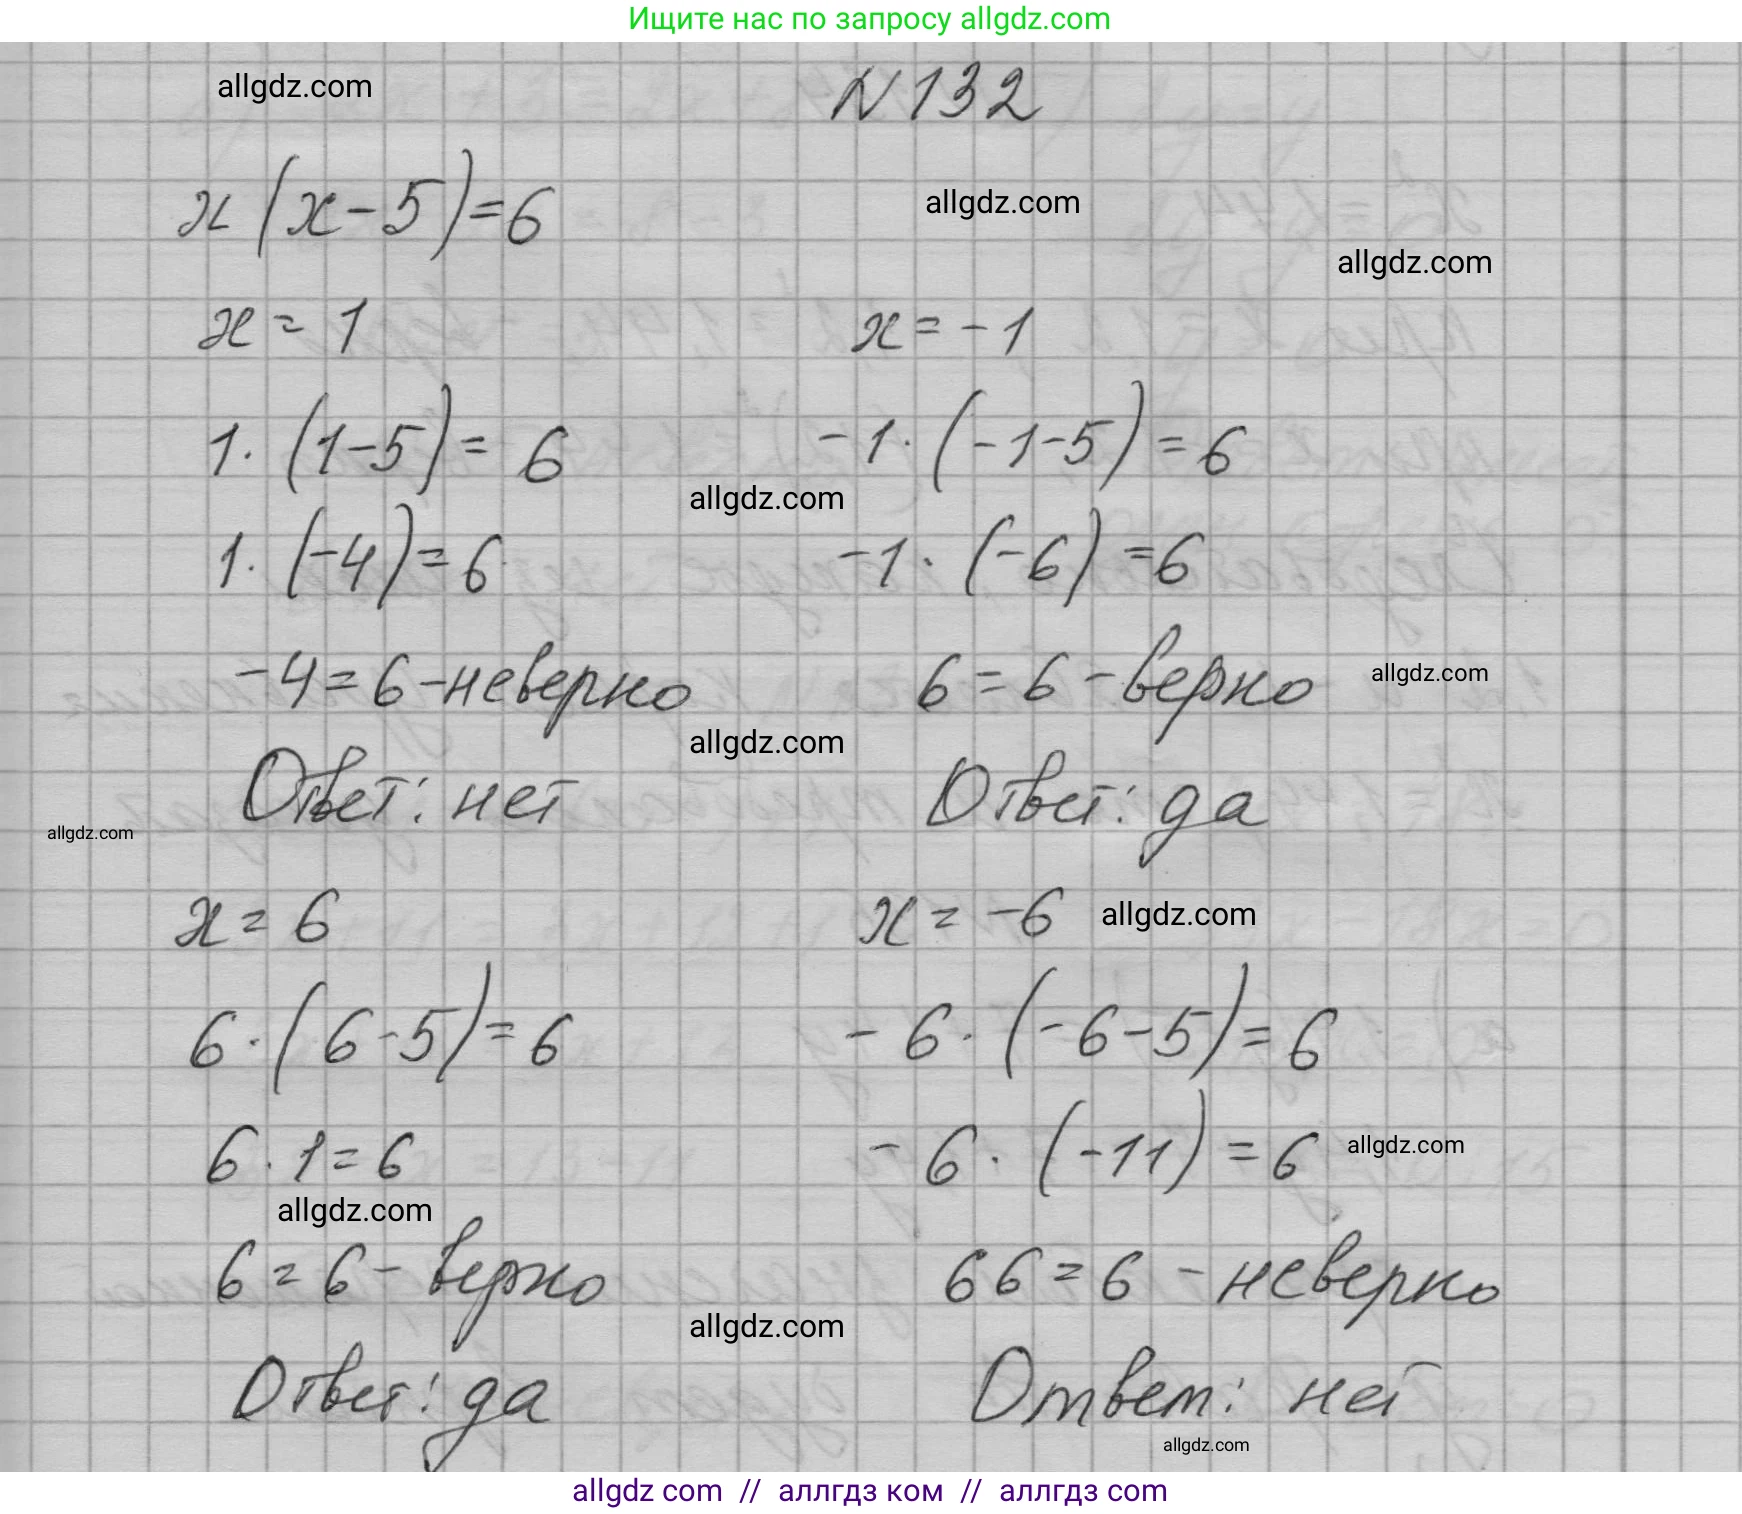 Ищите нас по запросу allgdz.com
allgdz.com
N 132
x (x-5)=6
allgdz.com
allgdz.com
x = 1
x = -1
1. (1-5) = 6
-1. (-1-5) = 6
allgdz.com
1. (-4) = 6
-1. (-6) = 6
-4 = 6 - неверно
6 = 6 - верно
allgdz.com
allgdz.com
Ответ: нет
Ответ: да
allgdz.com
x = 6
x = -6
allgdz.com
6. (6-5) = 6
-6. (-6-5) = 6
6. 1 = 6
-6. (-11) = 6
allgdz.com
allgdz.com
6 = 6 - верно
66 = 6 - неверно
allgdz.com
Ответ: да
Ответ: нет
allgdz.com
allgdz com // аллгдз ком // аллгдз com